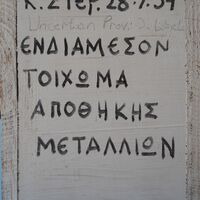 Κ. ΣΤΕΡ. 28.7.54
Uncertain Prov.
ΕΝΔΙΑΜΕΣΟΝ
ΤΟΙΧΩΜΑ
ΑΠΟΘΗΚΗΣ
ΜΕΤΑΛΛΙΩΝ